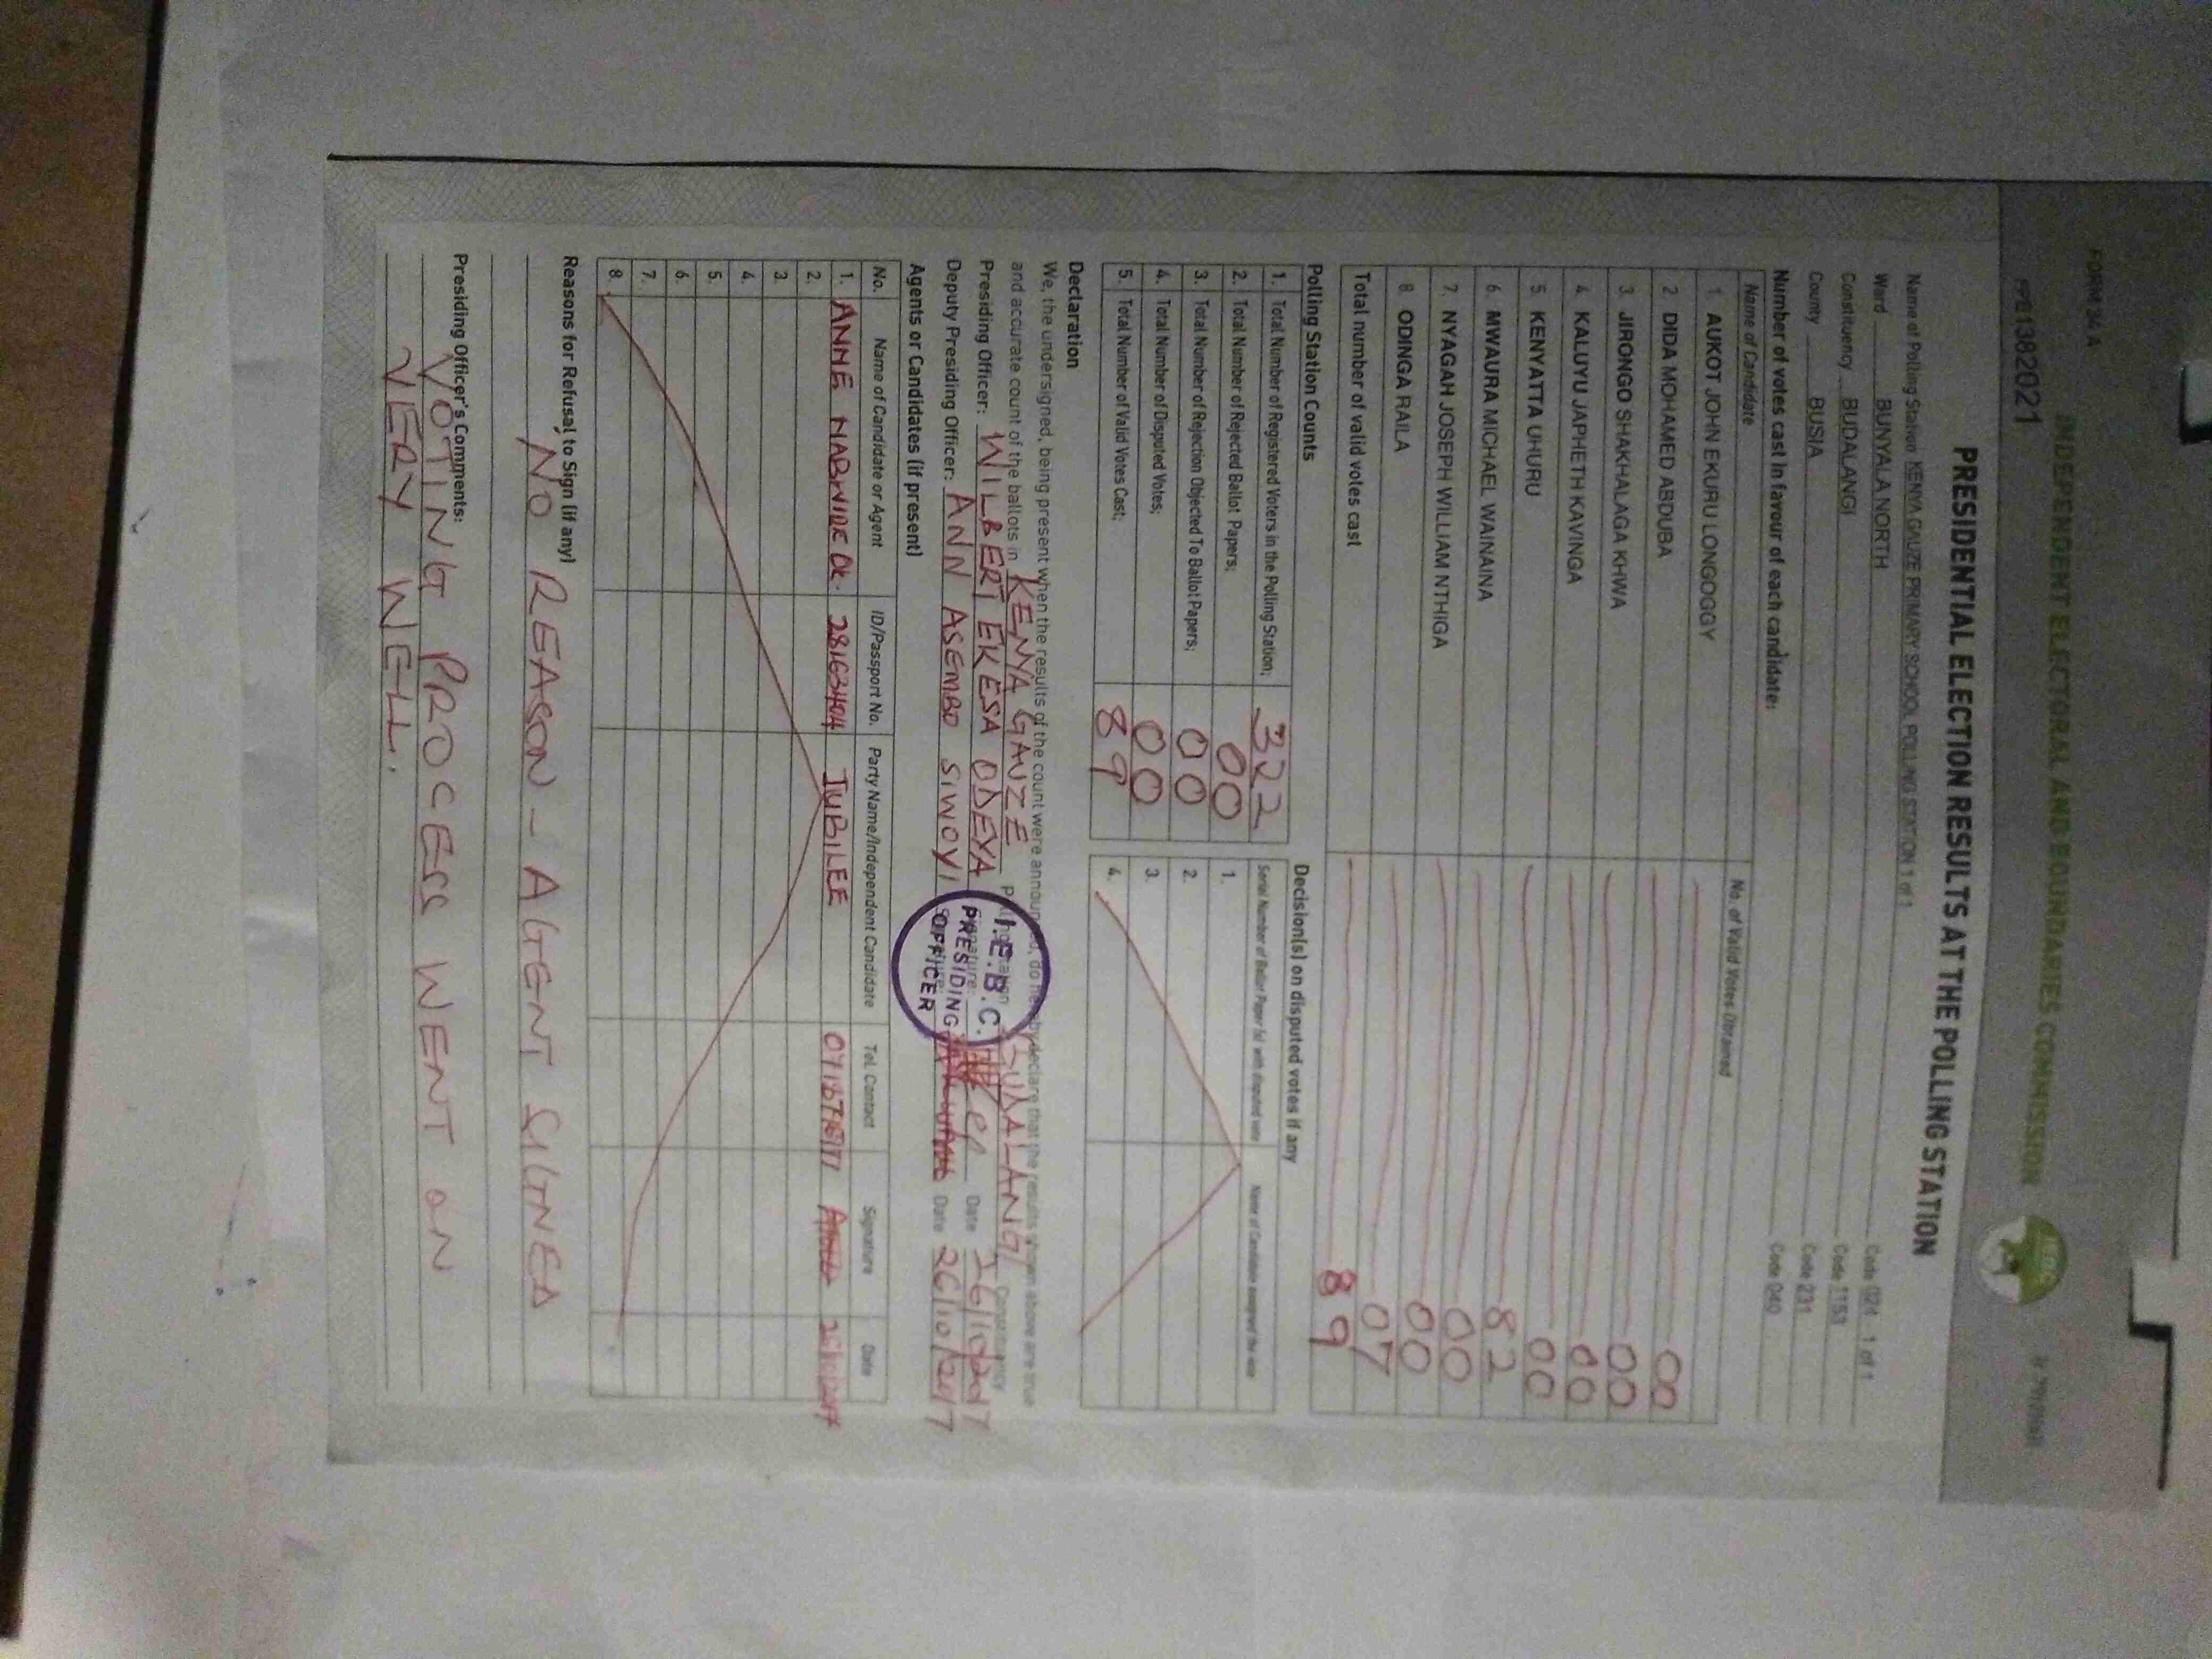 FORM 34 A
INDEPENDENT ELECTORAL AND BOUNDARIES COMMISSION
IEBC
PRE1382021
PRESIDENTIAL ELECTION RESULTS AT THE POLLING STATION
Name of Polling Station KENYA GAUZE PRIMARY SCHOOL POLLING STATION 1 of 1 Code 1 of 1
Ward BUNYALA NORTH Code 1153
Constituency BUDALANGI Code 231
County BUSIA Code 040
Number of votes cast in favour of each candidate:
Name of Candidate No. of Valid Votes Obtained
1. AUKOT JOHN EKURU LONGOGGY 00
2. DIDA MOHAMED ABDUBA 00
3. JIRONGO SHAKHALAGA KHWA 00
4. KALUYU JAPHETH KAVINGA 00
5. KENYATTA UHURU 82
6. MWAURA MICHAEL WAINAINA 00
7. NYAGAH JOSEPH WILLIAM NTHIGA 00
8. ODINGA RAILA 07
Total number of valid votes cast 89
Polling Station Counts Decision(s) on disputed votes if any
1. Total Number of Registered Voters in the Polling Station; 322
2. Total Number of Rejected Ballot Papers; 00
3. Total Number of Rejection Objected To Ballot Papers; 00
4. Total Number of Disputed Votes; 00
5. Total Number of Valid Votes Cast; 89
Serial Number of Ballot Paper (s) with disputed vote Name of Candidate assigned the vote
1.
2.
3.
4.
Declaration
We, the undersigned, being present when the results of the count were announced, do hereby declare that the results shown above are true
and accurate count of the ballots in KENYA GAUZE Polling station BUDALANGI Constituency
Presiding Officer: WILBERT EKESA ODEYA Signature: Date 26/10/2017
Deputy Presiding Officer: ANN ASEMBO SIWOYI Signature: Date 26/10/2017
I.E.B.C.
PRESIDING
OFFICER
Agents or Candidates (if present)
No. Name of Candidate or Agent ID/Passport No. Party Name/Independent Candidate Tel. Contact Signature Date
1. ANNE JUBILEE 26/10/2017
2.
3.
4.
5.
6.
7.
8.
Reasons for Refusal to Sign (if any)
NO REASON - AGENT SIGNED
Presiding Officer's Comments:
VOTING PROCESS WENT ON
VERY WELL.